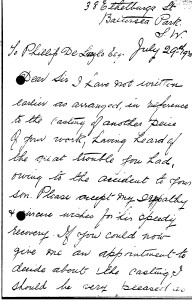 38 Ethelburga St
Battersea Park.
S.W.
July 29th
To Phillip De Laszlo Esq.
Dear Sir I have not written
earlier as arranged, in reference
to the casting of another peice
of your work, having heard of
the great trouble you had,
owing to the accident to your
son. Please accept my sympathy
& sincere wishes for his speedy
recovery. If you could now
give me an appointment to
decide about the casting I
should be very pleased